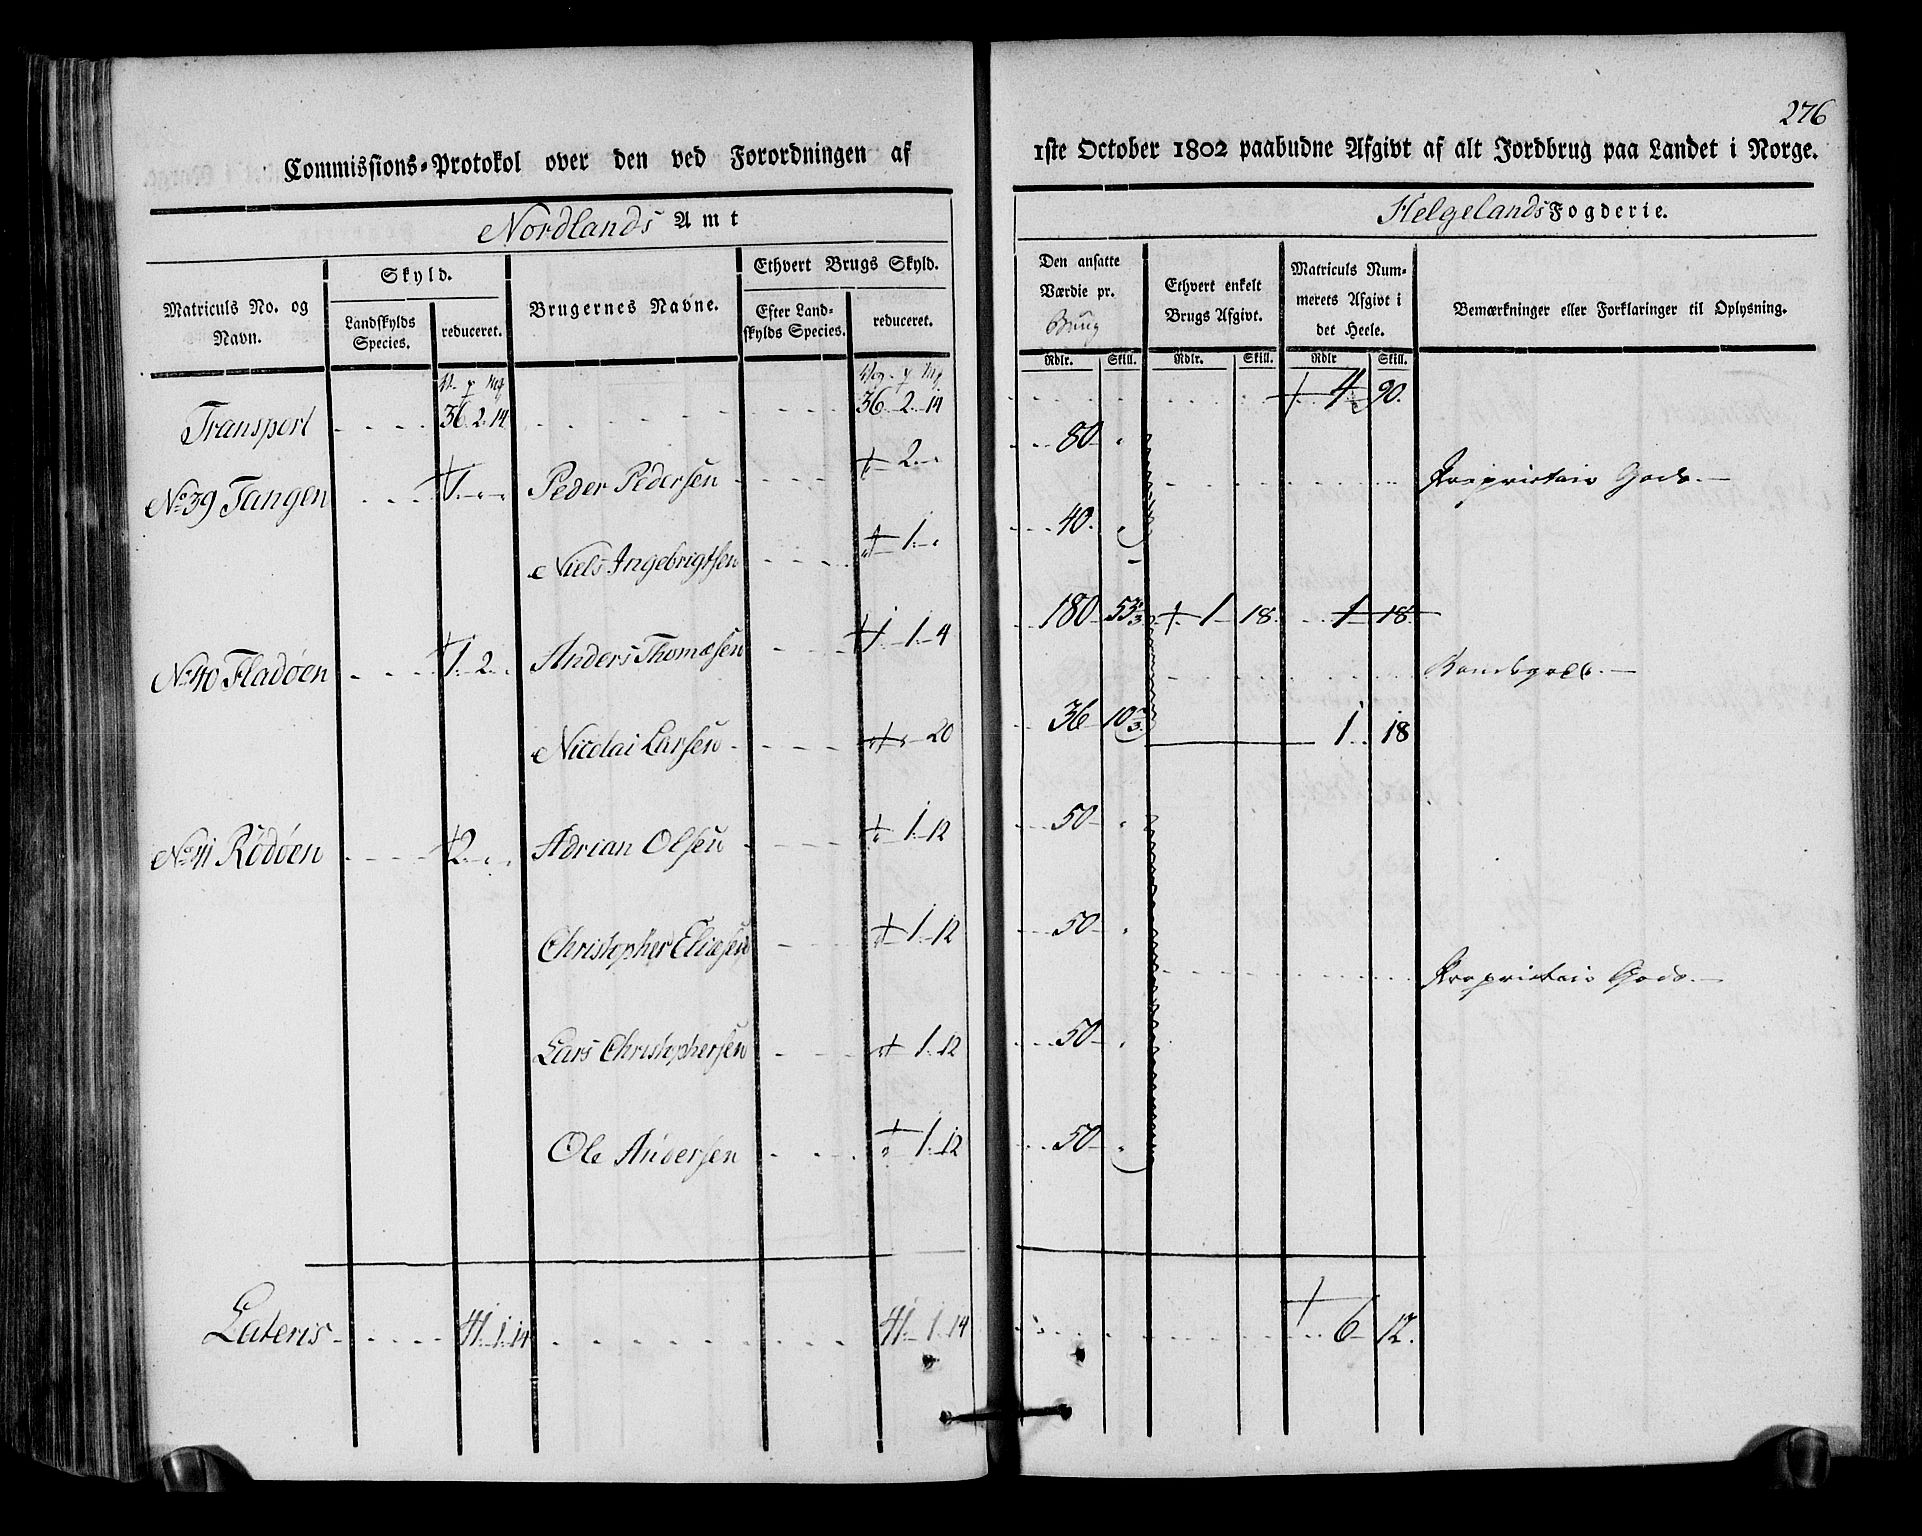 276
Commissions-Protokol over den ved Forordningen af 1ste October 1802 paabudne Afgivt af alt Jordbrug paa Landet i Norge.
Nordlands Amt
Helgelands Fogderie.
Matriculs No. og Navn.
Skyld.
Landskylds Species.
reduceret.
Brugernes Navne.
Ethvert Brugs Skyld.
Efter Land-
skylds Species.
reduceret.
Den ansatte Værdie pr. Brug
Ethvert enkelt Brugs Afgivt.
Matriculs Num-
merets Afgivt i det Heele.
Bemærkninger eller Forklaringer til Oplysning.
Rdlr. Skill. Rdlr. Skill. Rdlr Skill.
Transport 36. 2. 14 36. 2. 14 4 90.
No 39 Tangen 1. Peder Pedersen 2. 80 Proprietair Gods.
Niels Ingebrigtsen 1. 40.
No 40 Fladøen 1. 2. Anders Thomæsen 1. 1. 4 180 53 1/3 1 18. 1 18. Bondegods.
Nicolai Larsen 20 36 10 2/3 1 18
No 41 Rødøen 2. Adrian Olsen 1. 12 50
Christopher Eliæsen 1. 12 50 Proprietair Gods.
Lars Christophersen 1. 12 50
Ole Andersen 1. 12 50
Lateris 41. 1. 14 41. 1. 14 6 12.